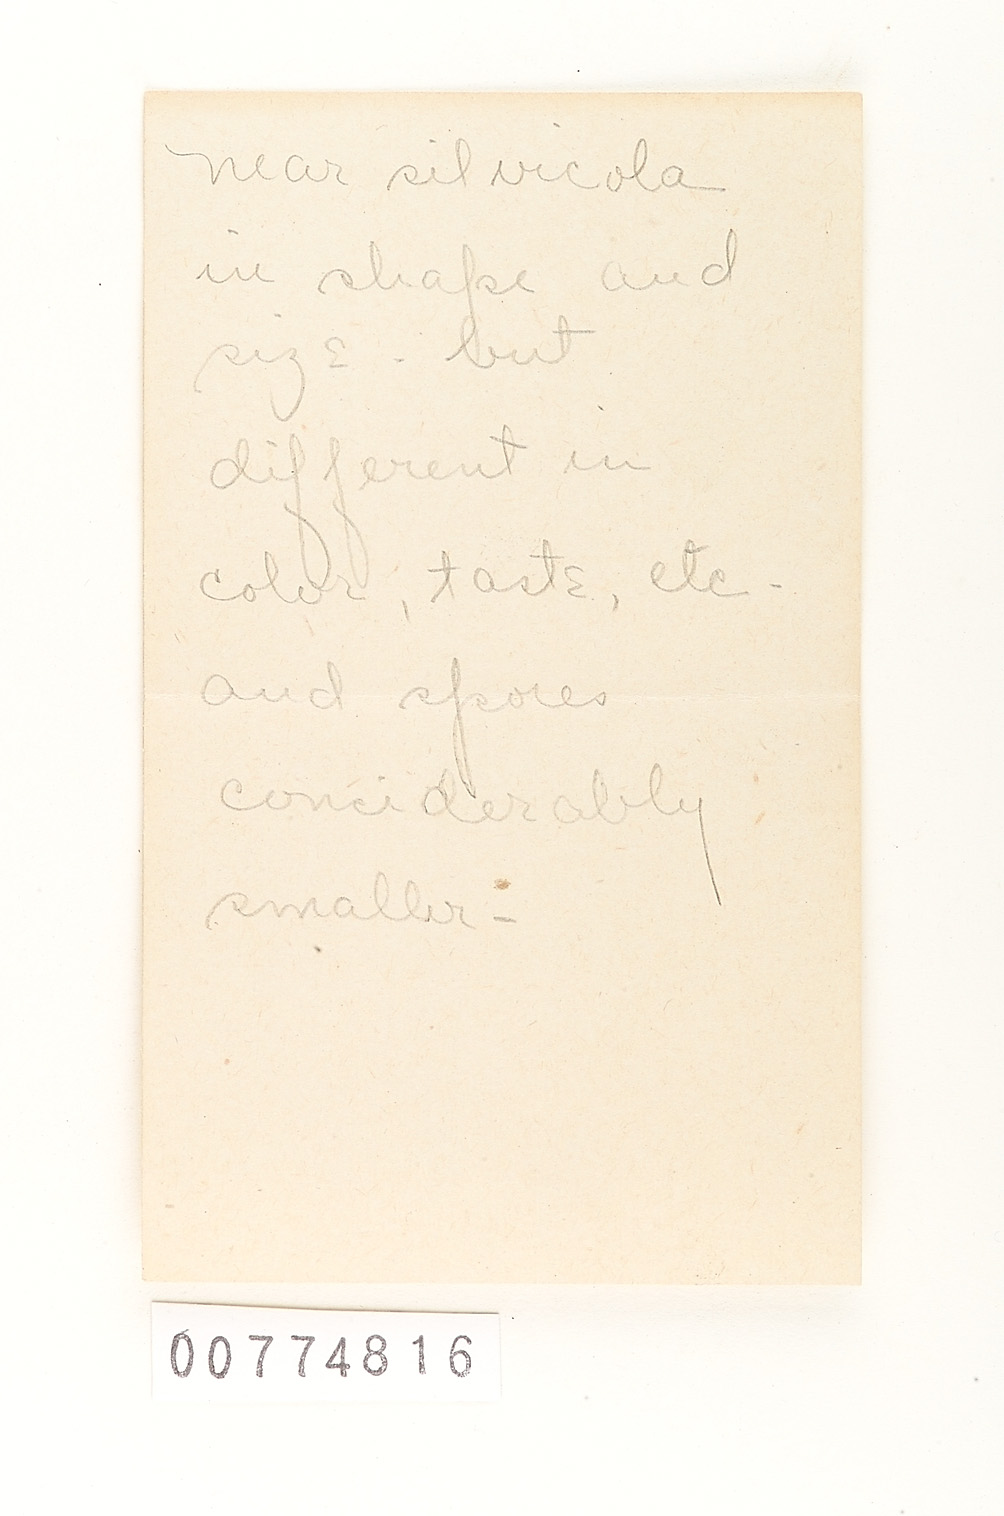 near silvicola
in shape and
size - but
different in
color, taste, etc -
and spores
conciderably
smaller -
00774816